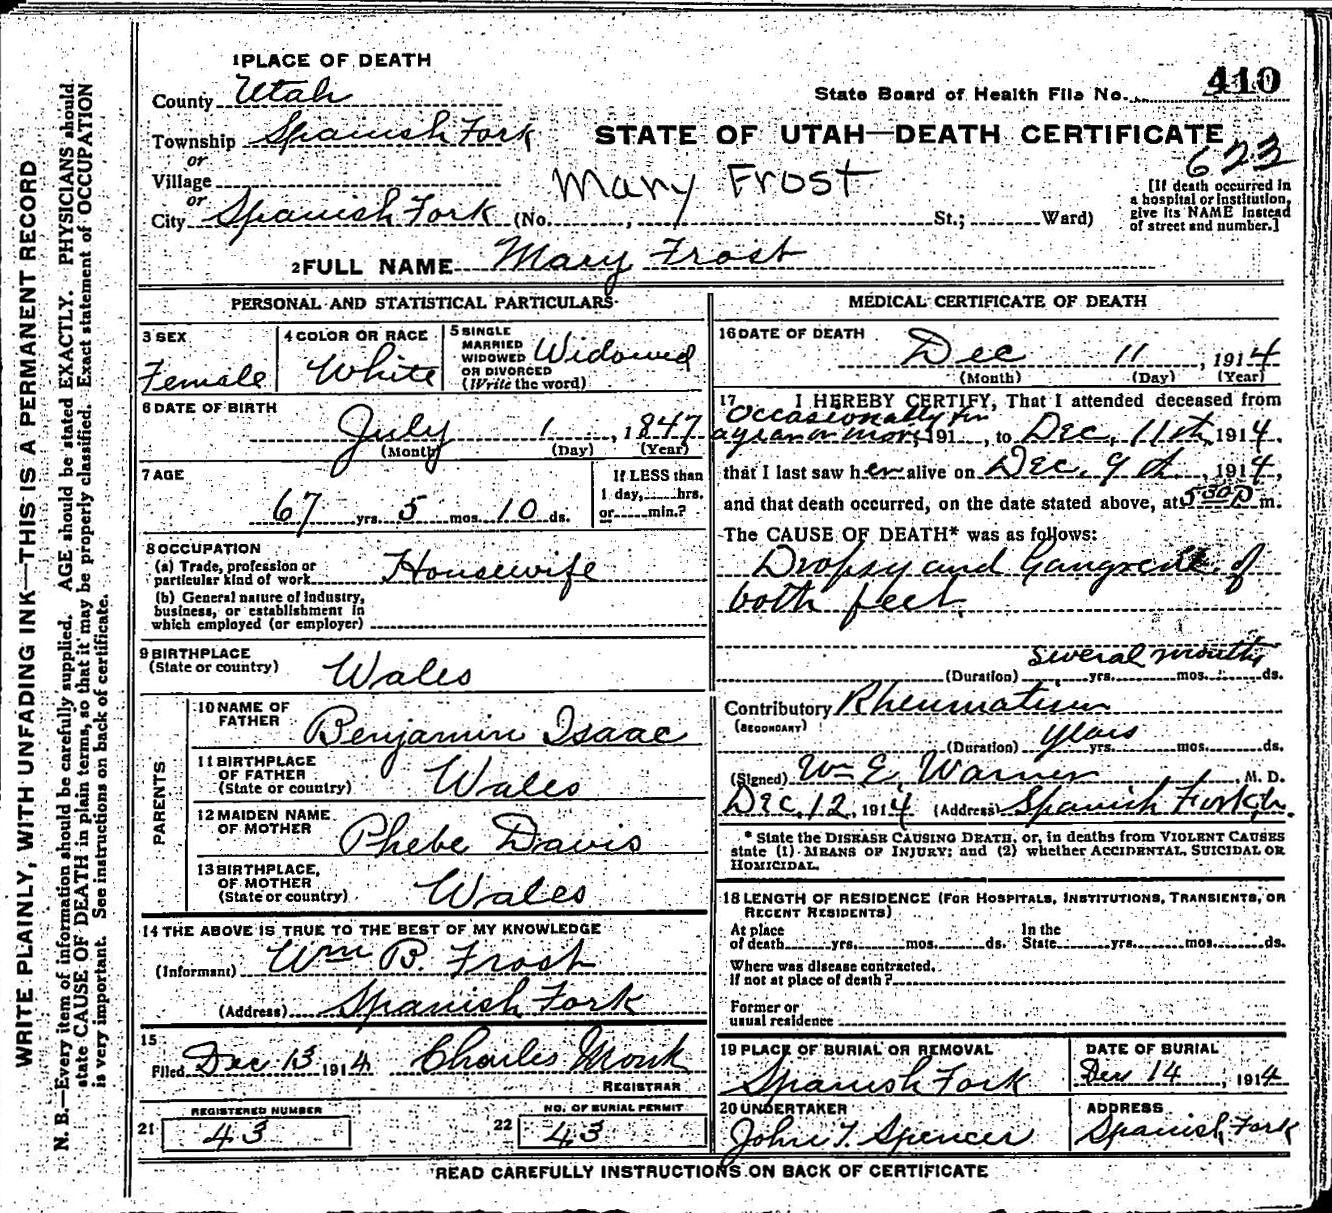 WRITE PLAINLY, WITH UNFADING INK—THIS IS A PERMANENT RECORD
N. B.—Every item of information should be carefully supplied. AGE should be stated EXACTLY. PHYSICIANS should
state CAUSE OF DEATH in plain terms, so that it may be properly classified. Exact statement of OCCUPATION
is very important. See instructions on back of certificate.
1 PLACE OF DEATH
County Utah
State Board of Health File No. 410
Township Spanish Fork
STATE OF UTAH—DEATH CERTIFICATE
623
or
Village
Mary Frost
or
City Spanish Fork (No. , St.; Ward)
[If death occurred in
a hospital or institution,
give its NAME instead
of street and number.]
2 FULL NAME Mary Frost
PERSONAL AND STATISTICAL PARTICULARS
3 SEX
Female
4 COLOR OR RACE
White
5 SINGLE
MARRIED
WIDOWED
OR DIVORCED
(Write the word)
Widowed
6 DATE OF BIRTH
July 1, 1847
(Month) (Day) (Year)
7 AGE
67 yrs. 5 mos. 10 ds.
If LESS than
1 day, hrs.
or min.?
8 OCCUPATION
(a) Trade, profession or
particular kind of work Housewife
(b) General nature of industry,
business, or establishment in
which employed (or employer)
9 BIRTHPLACE
(State or country) Wales
PARENTS
10 NAME OF
FATHER Benjamin Isaac
11 BIRTHPLACE
OF FATHER
(State or country) Wales
12 MAIDEN NAME
OF MOTHER Phebe Davis
13 BIRTHPLACE
OF MOTHER
(State or country) Wales
14 THE ABOVE IS TRUE TO THE BEST OF MY KNOWLEDGE
(Informant) Wm B. Frost
(Address) Spanish Fork
15
Filed Dec 13 1914 Charles Monk
REGISTRAR
21 REGISTERED NUMBER
43
22 NO. OF BURIAL PERMIT
43
MEDICAL CERTIFICATE OF DEATH
16 DATE OF DEATH
Dec 11, 1914
(Month) (Day) (Year)
17 I HEREBY CERTIFY, That I attended deceased from
Occasionally for
a year or more 191 , to Dec. 11th, 1914.
that I last saw her alive on Dec. 9th 1914,
and that death occurred, on the date stated above, at 5 30 P m.
The CAUSE OF DEATH* was as follows:
Dropsy and Gangrene of
both feet.
several months
(Duration) yrs. mos. ds.
Contributory Rheumatism
(SECONDARY)
years
(Duration) yrs. mos. ds.
(Signed) Wm E. Warner, M. D.
Dec. 12, 1914 (Address) Spanish Fork
* State the DISEASE CAUSING DEATH, or, in deaths from VIOLENT CAUSES
state (1) MEANS OF INJURY; and (2) whether ACCIDENTAL, SUICIDAL OR
HOMICIDAL.
18 LENGTH OF RESIDENCE (FOR HOSPITALS, INSTITUTIONS, TRANSIENTS, OR
RECENT RESIDENTS)
At place In the
of death yrs. mos. ds. State yrs. mos. ds.
Where was disease contracted,
If not at place of death?
Former or
usual residence
19 PLACE OF BURIAL OR REMOVAL
Spanish Fork
DATE OF BURIAL
Dec 14, 1914
20 UNDERTAKER
John T. Spencer
ADDRESS
Spanish Fork
READ CAREFULLY INSTRUCTIONS ON BACK OF CERTIFICATE